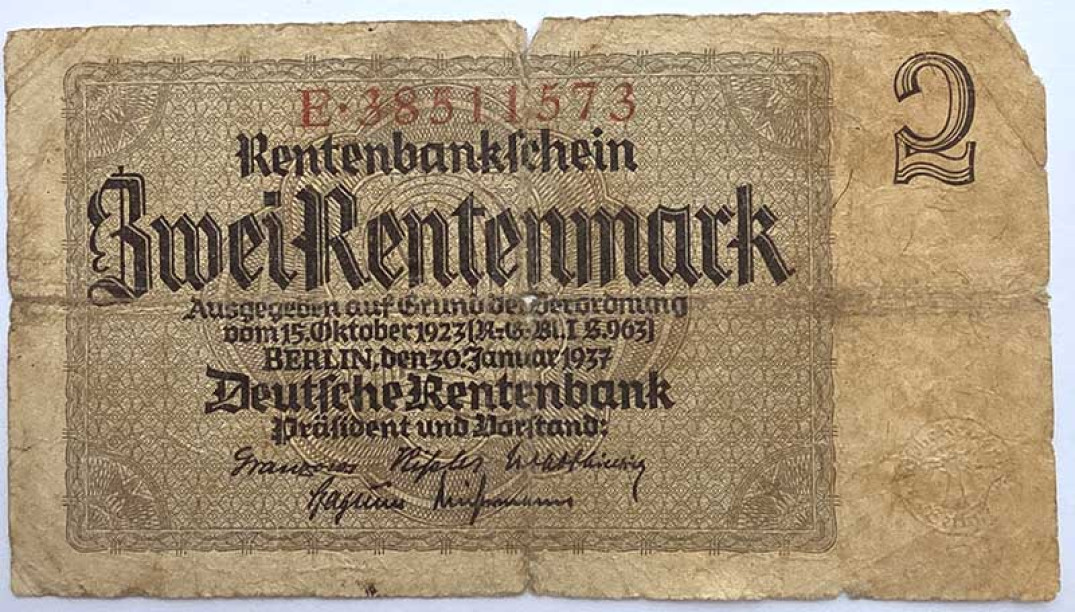 E·38511573
2
Rentenbankschein
Zwei Rentenmark
Ausgegeben auf Grund der Verordnung
vom 15. Oktober 1923 (R.-G.-Bl. I S. 963)
BERLIN, den 30. Januar 1937
Deutsche Rentenbank
Präsident und Vorstand: